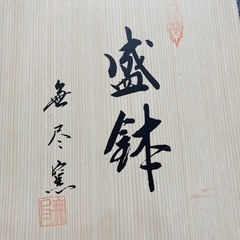 盛鉢
無尽窯